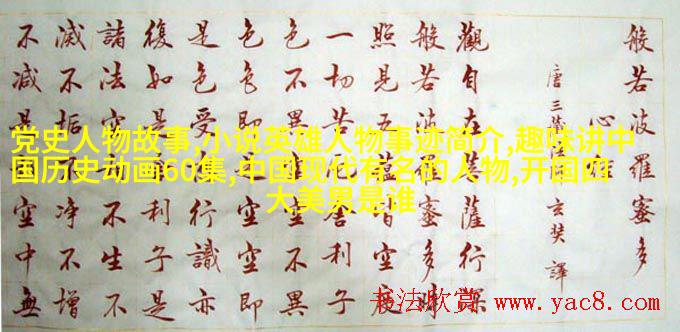 般若波羅蜜多
心經
唐三藏法師玄奘譯
觀自在菩薩行深
般若波羅蜜多時
照見五皆空度
一切苦舍利子
色不異空不異
色色即空空即
是色受行識亦
復如是利子是
諸法空不生不
滅不垢淨不增
不減是空中無
党史人物故事,小说英雄人物事迹简介,趣味讲中
国历史动画60集,中国现代有名的人物,开国四
大美男是谁
书法欣赏 www.yac8.com